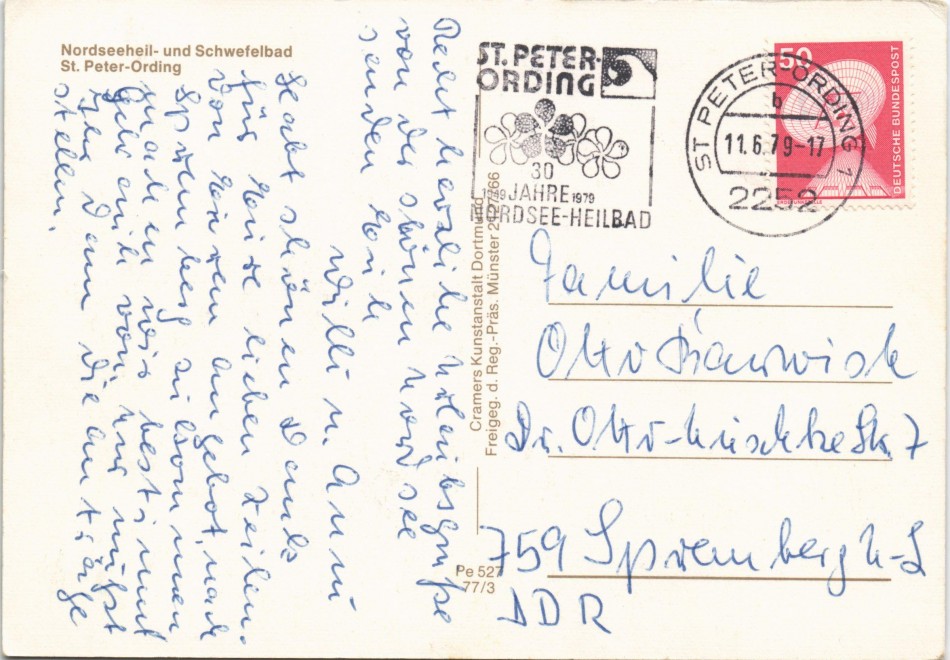 Nordseeheil- und Schwefelbad
St. Peter-Ording
Recht herzliche Urlaubsgrüße
von der schönen Nordsee
senden Euch
Willi u. Anni
Habt schönen Dank
für Eure lieben Zeilen.
Von Eurem Angebot, nach
Spremberg zu kommen
machen wir bestimmt
Gebrauch. Ihr müßt
dann die Anträge
stellen.
Cramers Kunstanstalt Dortmund
Freigeg. d. Reg.-Präs. Münster
Pe 527
77/3
ST. PETER-
ORDING
30
1949 JAHRE 1979
NORDSEE-HEILBAD
ST PETER-ORDING 1
b
11.6.79-17
2252
50
DEUTSCHE BUNDESPOST
Familie
Otto
Dr. Otto- Str. 7
759 Spremberg N-L
DDR